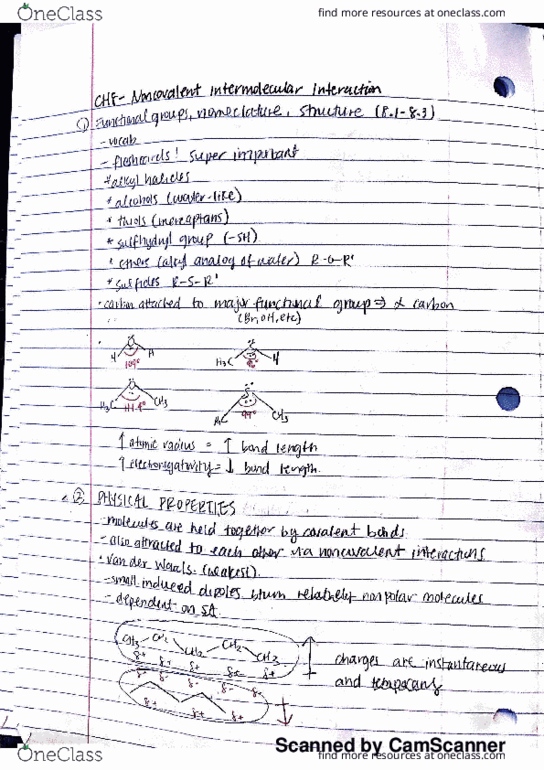 OneClass
find more resources at oneclass.com
CH8- Noncovalent intermolecular interaction
① Functional groups, nomenclature, structure (8.1-8.3)
- vocab
- flashcards! super important
* alkyl halides
* alcohols (water-like)
* thiols (mercaptans)
* sulfhydryl group (-SH)
* ethers (alkyl analog of water) R-O-R'
* sulfides R-S-R'
• carbon attached to major functional group ⇒ α carbon
(Br, OH, etc)
H H H₃C H
109°
H₃C CH₃ CH₃
99°
↑ atomic radius = ↑ bond length
↑ electronegativity = ↓ bond length.
② PHYSICAL PROPERTIES
- molecules are held together by covalent bonds
- also attracted to each other via noncovalent interactions
• van der Waals: (weakest).
- small induced dipoles btwn relatively nonpolar molecules
- dependent on SA
CH₃ CH₂ CH₂ CH₂ CH₃
charges are instantaneous
and temporary
Scanned by CamScanner
OneClass
find more resources at oneclass.com